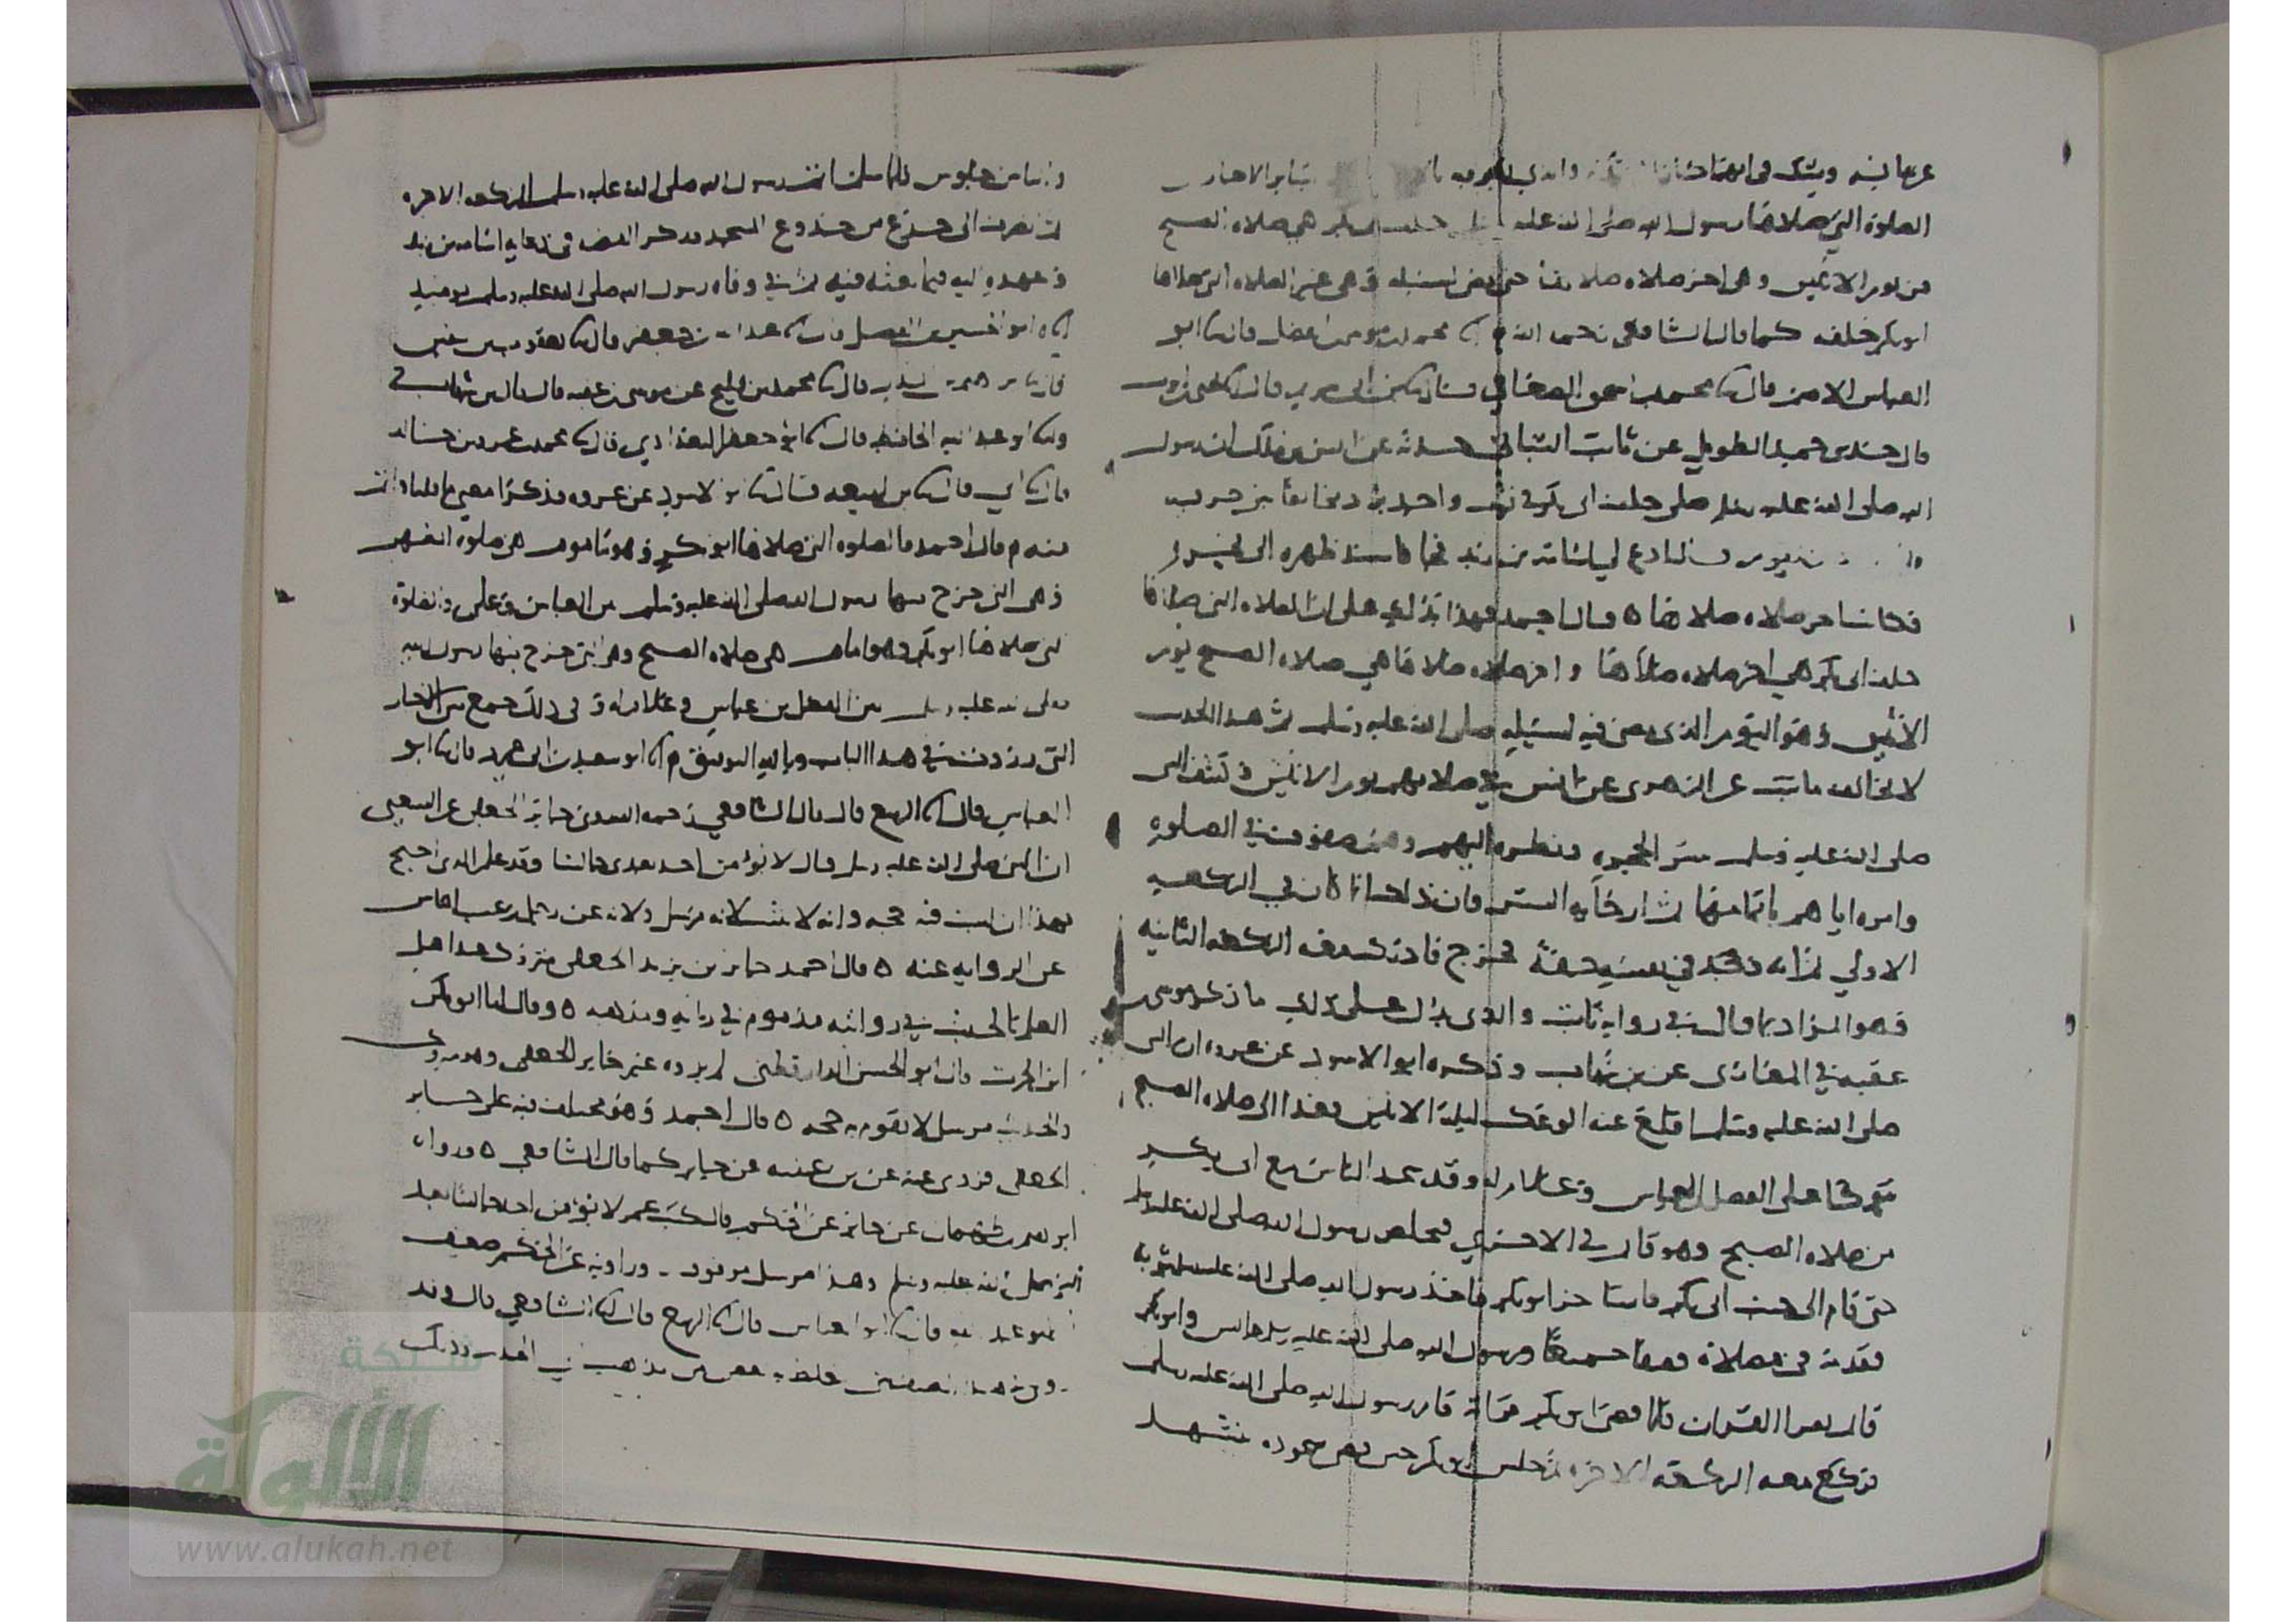 الصلوة التي صلاها رسول الله صلى الله عليه خلف ابي بكر هي صلاه الصبح
من يوم الاثنين وهي اخر صلاه صلاها حتى مضى لسبيله وهي غير الصلاه التي صلاها
ابو بكر خلفه كما قال الشافعي رحمه الله محمد بن موسى بن الفضل قال ابو
العباس الاصم قال محمد بن اسحق الصغاني ابن ابي مريم قال يحيى بن ايوب
قال حدثني حميد الطويل عن ثابت البناني حدثه عن انس بن مالك ان رسول
الله صلى الله عليه وسلم صلى خلف ابي بكر في ثوب واحد برد مخالفا بين طرفيه
يقوم قال ادع لي اسامه بن زيد فجا فاسند ظهره الى نحره
فكانت اخر صلاه صلاها ه قال احمد فهذا يدلك على ان الصلاه التي صلاها
خلف ابي بكر هي اخر صلاه صلاها واخر صلاه صلاها هي صلاه الصبح يوم
الاثنين وهو اليوم الذي مضى فيه لسبيله صلى الله عليه وسلم ثم هذا الحديث
لا يخالف ما ثبت عن الزهري عن انس في صلاتهم يوم الاثنين وكشف النبي
صلى الله عليه وسلم ستر الحجره ونظره اليهم وهم صفوف في الصلوة
وامره اياهم باتمامها ثم ارخايه الستر فان ذلك انما كان في الركعه
الاولى ثم انه وجد في نفسه خفة فخرج فادرك معه الركعه الثانيه
فهو المراد بما قال في رواية ثابت والذي يدل على ذلك ما ذكر موسى بن
عقبه في المغازي عن بن شهاب وذكره ابو الاسود عن عروه ان النبي
صلى الله عليه وسلم اقلع عنه الوعك ليلة الاثنين فغدا الى صلاه الصبح
متوكئا على الفضل بن العباس وغلام له وقد سجد الناس مع ابي بكر
من صلاه الصبح وهو قائم في الاخرى فتخلص رسول الله صلى الله عليه وسلم
حتى قام الى جنب ابي بكر فاستاخر ابو بكر فاخذ رسول الله صلى الله عليه وسلم بثوبه
فقدمه في مصلاه فصفا جميعا ورسول الله صلى الله عليه وسلم جالس وابو بكر
قائم يقرا القران فلما قضى ابو بكر قرانه قام رسول الله صلى الله عليه وسلم
فركع معه الركعه الاخره ثم جلس ابو بكر حين قضى سجوده يتشهد
والناس جلوس فلما سلم اتم رسول الله صلى الله عليه وسلم الركعه الاخره
ثم انصرف الى جذع من جذوع المسجد فذكر القصه في دعايه اسامه بن زيد
وعهده اليه فيما بعثه فيه ثم في وفاه رسول الله صلى الله عليه وسلم يومئذ
ابو الحسين بن الفضل قال عبد الله بن جعفر قال يعقوب بن سفين
قال محمد بن فليح عن موسى بن عقبه قال قال بن شهاب ح
ابو عبد الله الحافظ قال ابو جعفر البغدادي قال محمد بن عمرو بن خالد
قال ابي قال بن لهيعه قال ابو الاسود عن عروه فذكرا معنى ما قلنا
قال احمد فالصلوه التي صلاها ابو بكر وهو ماموم هي صلوة الظهر
وهي التي خرج فيها رسول الله صلى الله عليه وسلم بين العباس وعلي والصلوة
التي صلاها ابو بكر وهو امام هي صلاه الصبح وهي التي خرج فيها رسول الله
صلى الله عليه وسلم بين الفضل بن عباس وغلام له وفي ذلك جمع بين الاخبار
التي وردت في هذا الباب وبالله التوفيق ابو سعيد بن ابي عمرو قال ابو
العباس قال الربيع قال قال الشافعي رحمه الله روى جابر الجعفي عن الشعبي
ان النبي صلى الله عليه وسلم قال لا يؤمن احد بعدي جالسا وقد علم الذي احتج
بهذا ان ليست فيه حجه وانه لا يثبت لانه مرسل ولانه عن رجل يرغب الناس
عن الروايه عنه ه قال احمد جابر بن يزيد الجعفي متروك عند اهل
العلم بالحديث في روايته مذموم في رايه ومذهبه ه وقال لنا ابو بكر
ابن الحرث قال ابو الحسن الدارقطني لم يروه غير جابر الجعفي وهو متروك
والحديث مرسل لا تقوم به حجه ه قال احمد وهو مختلف فيه على جابر
الجعفي فروي عنه عن بن عيينه عن جابر كما قال الشافعي ه ورواه
ابراهيم بن طهمان عن جابر عن الحكم قال كتب عمر لا يؤمن احد جالسا بعد
النبي صلى الله عليه وسلم وهذا مرسل موقوف وراويه عن الحكم ضعيف
ابو عبد الله قال ابو العباس قال الربيع قال الشافعي قال
شبكة
الألوكة
www.alukah.net